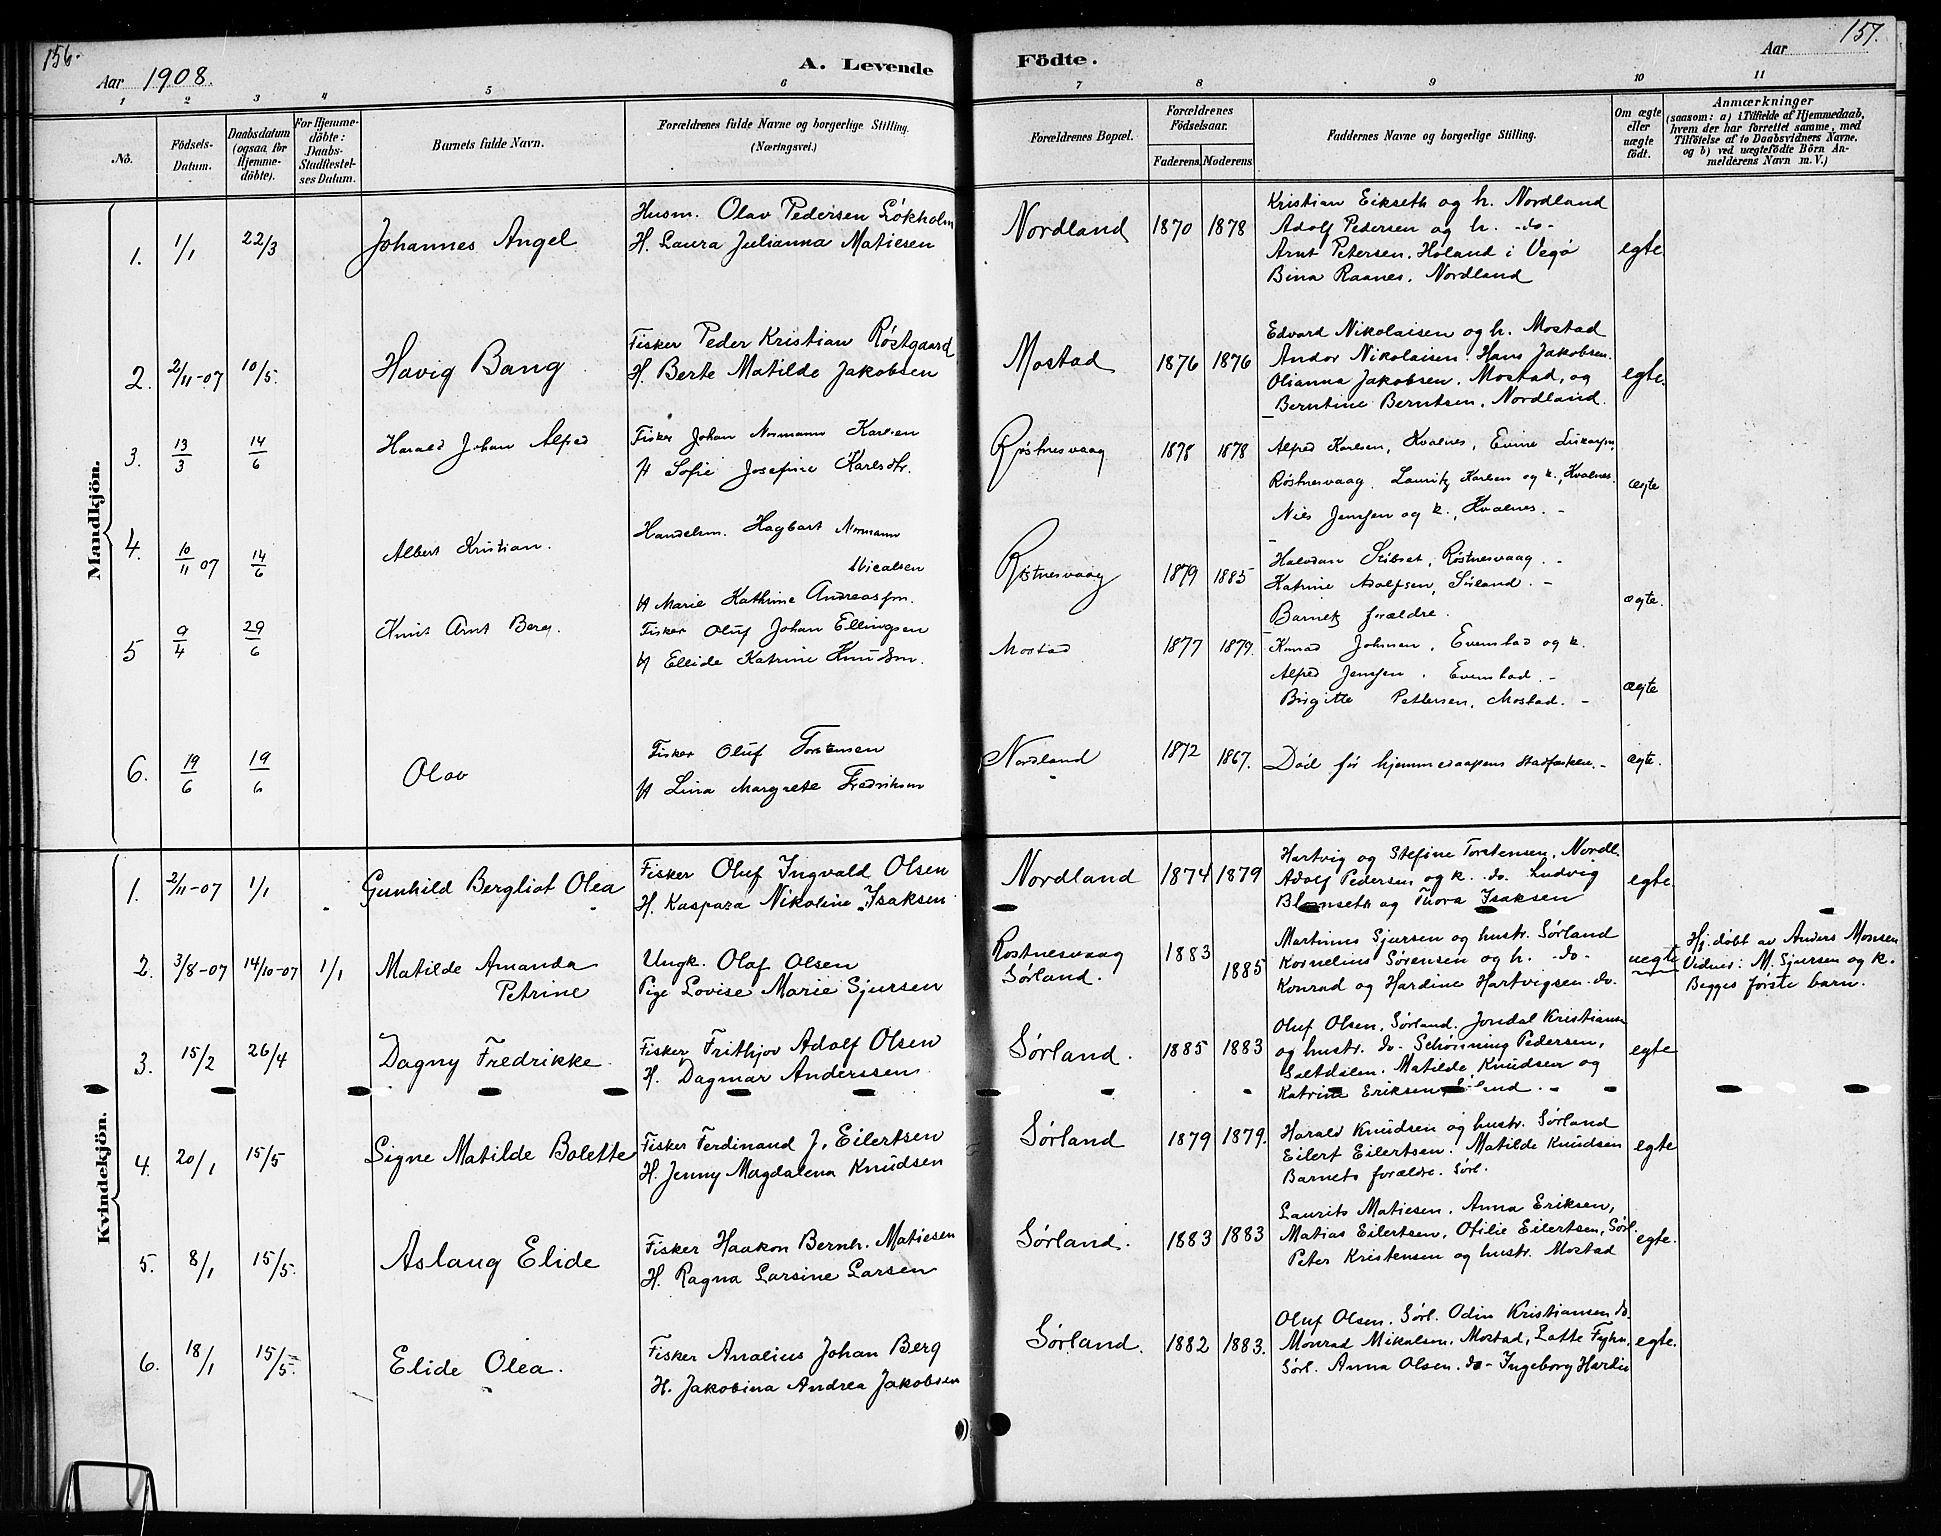 156.
Aar 1908.
A. Levende
1 2 3 4 5 6
No.
Födsels-Datum.
Daabsdatum (ogsaa for Hjemme-döbte).
For Hjemme-döbte: Daabs-Stadfæstel-ses Datum.
Barnets fulde Navn.
Forældrenes fulde Navne og borgerlige Stilling.
(Næringsvei.)
Mandkjön.
1. 1/1 22/3 Johannes Angel
Husm. Olav Pedersen Løkholm
H. Laura Julianna Matiesen
2. 2/11-07 10/5. Havig Bang
Fisker Peder Kristian Røstgaard
H. Berte Matilde Jakobsen
3. 13/3 14/6 Harald Johan Alfred
Fisker Johan Normann Karlsen
H Sofie Josefine Karlsdtr.
4. 10/11 07 14/6 Albert Kristian.
Handelsm. Hagbart Normann
Nicalsen
H Marie Kathrine Andreassen.
5 9/4 29/6 Knut Arnt Berg.
Fisker Oluf Johan Ellingsen
H Ellide Katrine Knudsen.
6. 19/6 19/6 Olav
Fisker Oluf Torstensen
H Lina Margrete Fredriksen
Kvindekjön.
1. 2/11-07 1/1 Gunhild Bergliot Olea
Fisker Oluf Ingvald Olsen
H. Kaspara Nikoline Isaksen
2. 3/8-07 14/10-07 1/1 Matilde Amanda
Petrine
Ungk. Olaf Olsen
Pige Lovise Marie Sjursen
3. 15/2 26/4 Dagny Fredrikke.
Fisker Frithjov Adolf Olsen
H. Dagmar Anderssen
4. 20/1 15/5 Signe Matilde Bolette
Fisker Ferdinand J. Eilertsen
H. Jenny Magdalena Knudsen
5. 8/1 15/5. Aslaug Elide
Fisker Haakon Bernh. Matiesen
H. Ragna Larsine Larsen
6. 18/1 15/5. Elide Olea.
Fisker Analius Johan Berg
H. Jakobina Andrea Jakobsen
157.
Födte.
Aar
7 8 9 10 11
Forældrenes Bopæl.
Forældrenes Födselsaar.
Faderens. Moderens
Faddernes Navne og borgerlige Stilling.
Om ægte eller uægte födt.
Anmærkninger
(saasom: a) i Tilfælde af Hjemmedaab,
hvem der har forrettet samme, med
Tilföielse af to Daabsvidners Navne,
og b) ved uægtefödte Börn An-
melderens Navn m. V.)
Nordland 1870 1878
Kristian Eikseth og h. Nordland
Adolf Pedersen og h. -do-
Arnt Petersen. Høland i Vegø
Bina Raanes. Nordland
egte.
Mostad 1876 1876
Edvard Nikolaisen og h. Mostad
Andor Nikolaisen. Hans Jakobsen.
Olianna Jakobsen. Mostad, og
Berntine Berntsen. Nordland.
egte.
Røstnesvaag 1878 1878
Alfred Karlsen, Kvalnes,
Røstnesvaag. Lauritz Karlsen og k., Kvalnes.
Nils Jenssen og k., Kvalnes. -
ægte
Røstnesvaag 1879 1885
Halvdan Røstnesvaag. -
Katrine Adolfsen, Sørland. -
Barnets forældre.
ægte.
Mostad 1877 1879.
Konrad Johnsen, Evenstad og k.
Alfred Jenssen. Evenstad. -
Birgitte Pettersen, Mostad. -
ægte
Nordland 1872 1867.
Död før hjemmedaapens stadfæsten. - ægte.
Nordland 1874 1879
Hartvig og Stefine Torstensen, Nordl.
Adolf Pedersen og k. do. Ludvig
og Thora Isaksen
egte.
Røstnesvaag
Sørland. 1883 1885
Martinus Sjursen og hustr. Sørland
Kornelius Sørensen og h. -do-
Konrad og Hardine Hartvigsen. do.
uegte
Hj. døbt av Anders Monsen
Vidner: M. Sjursen og k.
Begges første barn.
Sørland. 1885 1883
Oluf Olsen, Sørland. Jondal Kristiansen
og hustr. do- Schønning Pedersen,
Saltdalen. Matilde Knudsen og
Katrine Eriksen, Sørland.
egte
Sørland 1879 1879.
Harald Knudsen og hustr. Sørland
Eilert Eilertsen. Matilde Knudsen
Barnets forældre. Sørl.
egte
Sørland. 1883 1883
Laurits Matiesen. Anna Eriksen,
Matias Eilertsen, Otilie Eilertsen, Sørl.
Peter Kristensen og hustr. Mostad
egte.
Sørland. 1882 1883.
Oluf Olsen. Sørl. Odin Kristiansen do.
Monrad Mikalsen, Mostad, Lotte Fyhn,
Sørl. Anna Olsen. do- Ingeborg
egte.